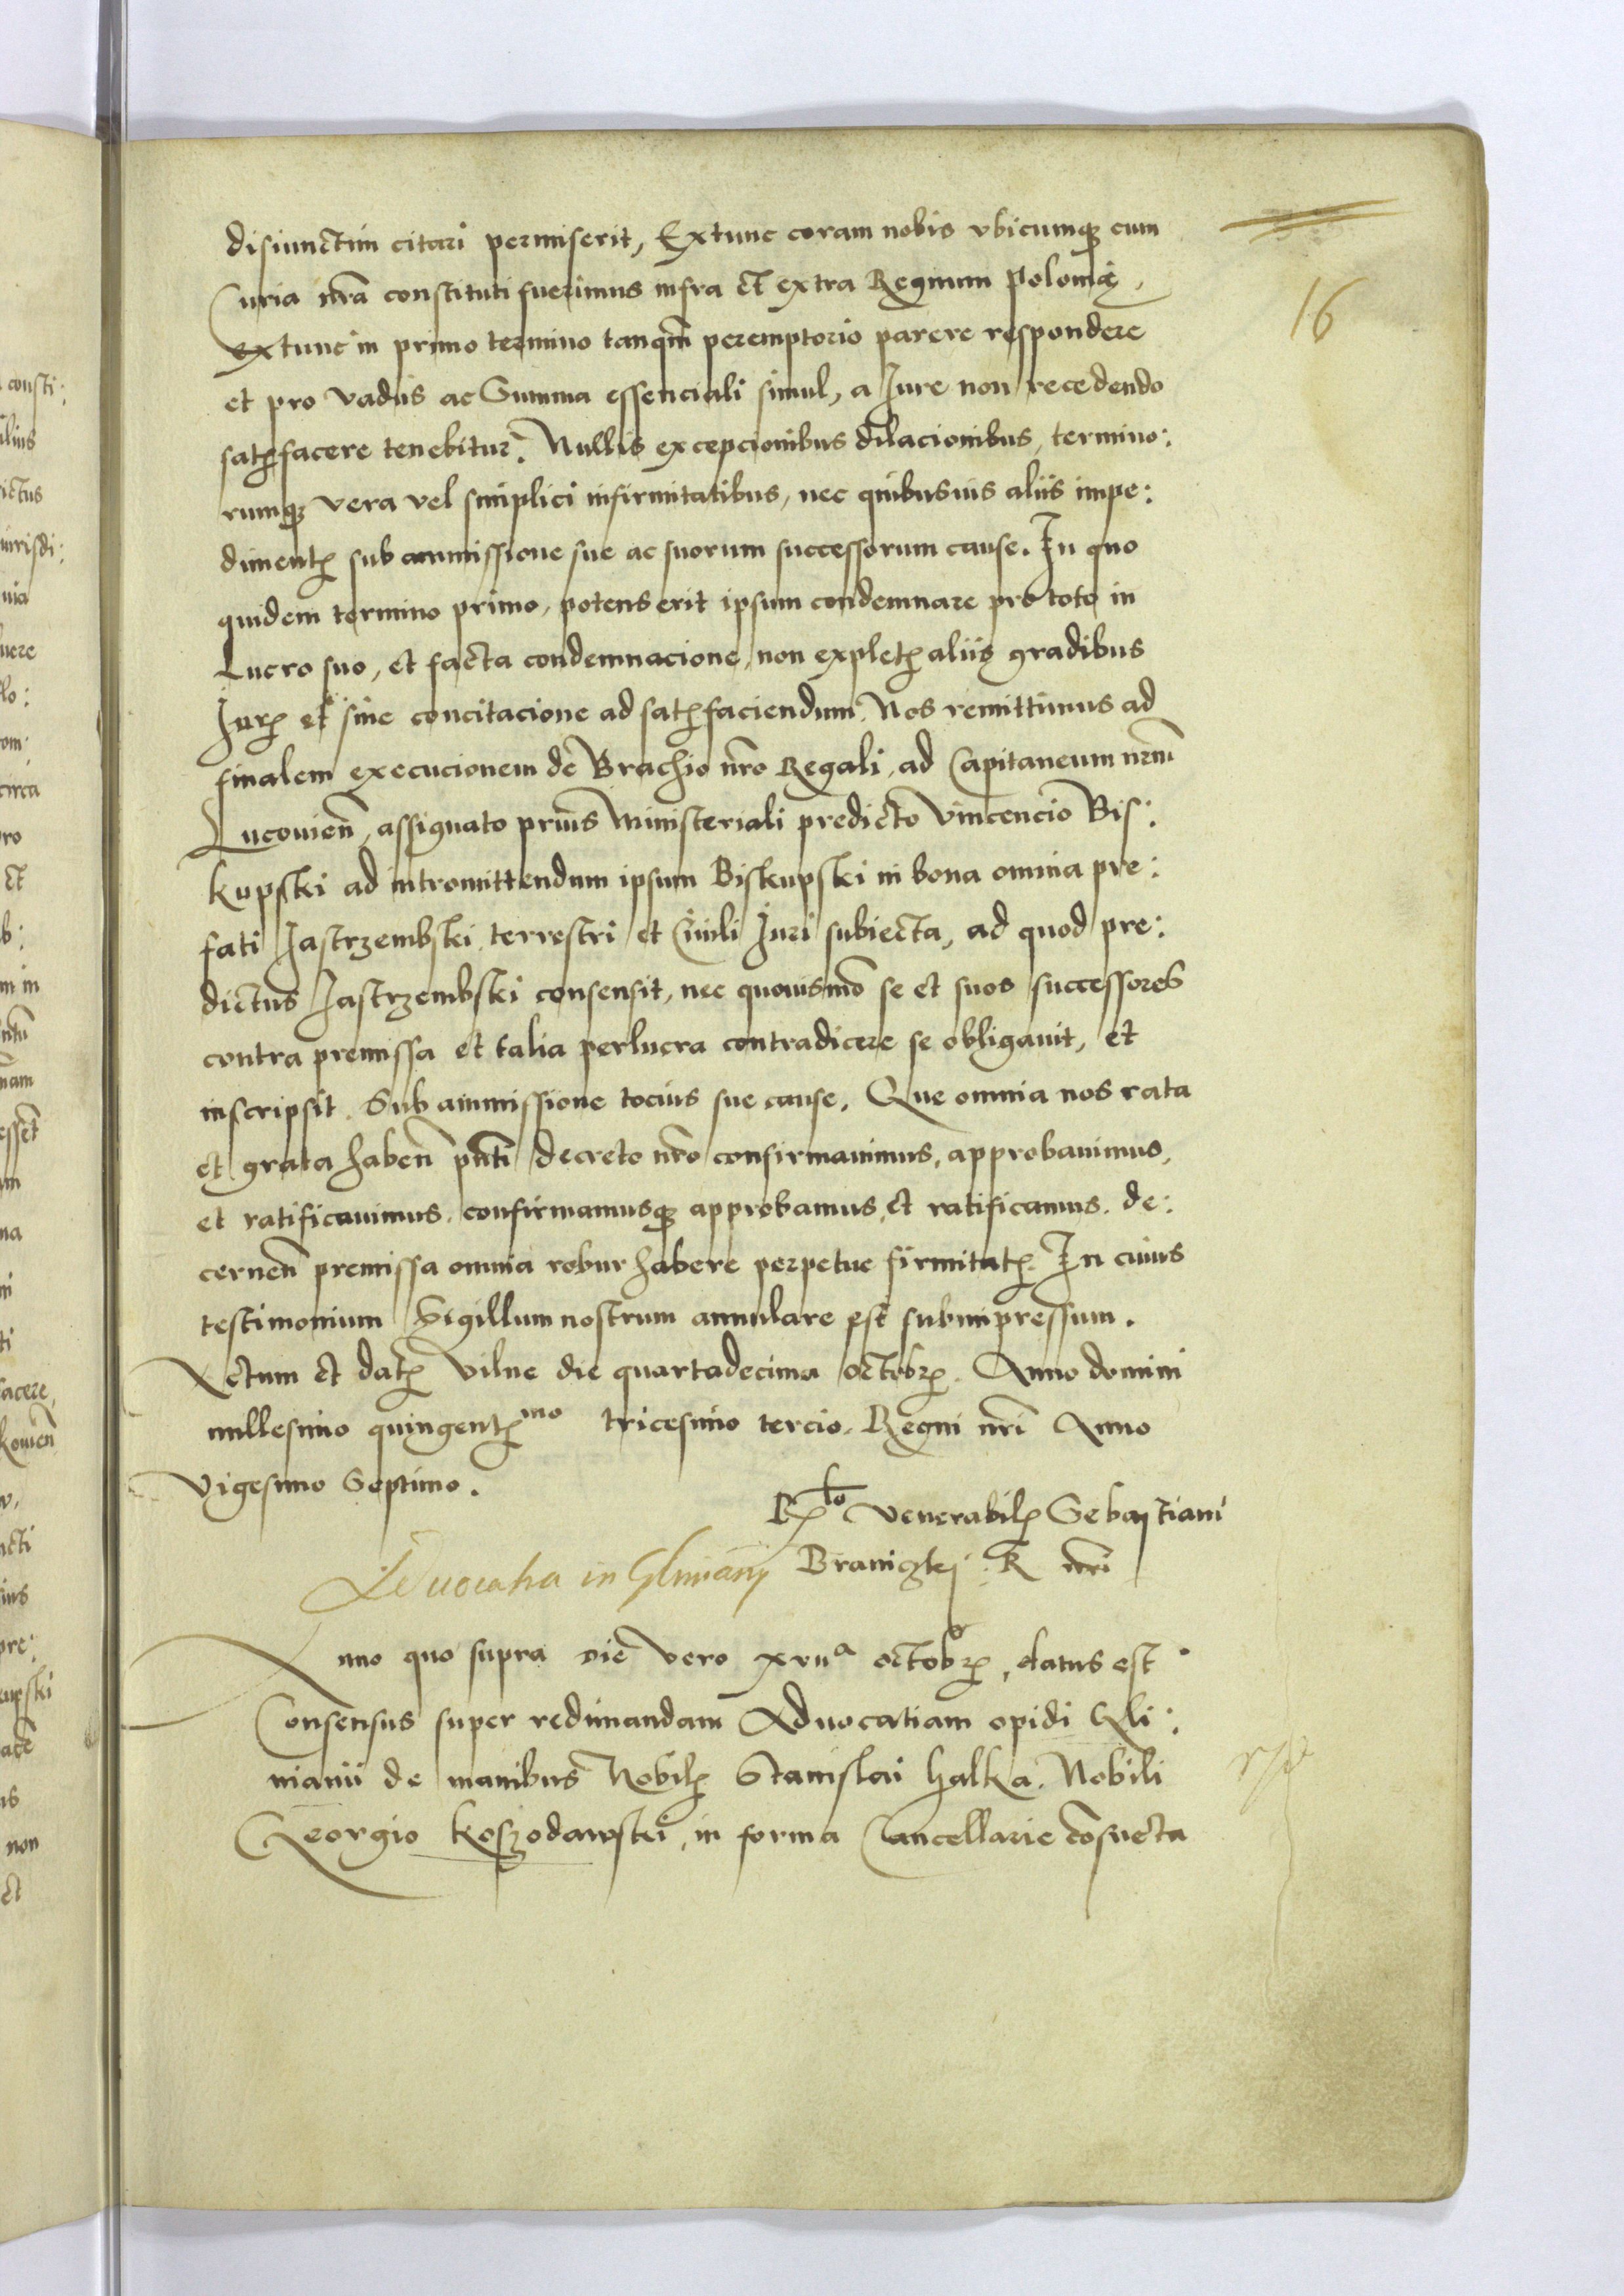 disiunctim citari permiserit, Extunc coram nobis vbicumq; cum
16
Curia nr̃a constituti fuerimus infra et extra Regnum Polonię,
extunc in primo termino tanqm̃ peremptorio parere respondere
et pro vadiis ac Summa essenciali simul, a Jure non recedendo
satꝭfacere tenebitur. Nullis excepcionibus dilacionibus, termino:
rumq; vera vel simplici infirmitatibus, nec quibusuis aliis impe:
dimentꝭ sub ammissione sue ac suorum successorum cause. In quo
quidem termino primo, potens erit ipsum condemnare pro toto in
Lucro suo, et facta condemnacione, non expletꝭ aliis gradibus
Jurꝭ et sine concitacione ad satꝭfaciendum. Nos remittimus ad
finalem execucionem de Brachio nr̃o Regali, ad Capitaneum nrm̃
Lucouien̄, assignato prius Ministeriali predicto Vincencio Bis:
kupski ad intromittendum ipsum Biskupski in bona omnia pre:
fati Jastrzembski terrestri et Ciuili Juri subiecta, ad quod pre:
dictus Jastrzembski consensit, nec quouismõ se et suos successores
contra premissa et talia perlucra contradicere se obligauit, et
inscripsit. Sub ammissione tocius sue cause. Que omnia nos rata
et grata haben̄ pn̄ti decreto nr̃o confirmauimus, approbauimus,
et ratificauimus. confirmamusq; approbamus, et ratificamus. de:
cernen̄ premissa omnia robur habere perpetue firmitatꝭ. In cuius
testimonium Sigillum nostrum annulare est subimpressum.
Actum et datꝭ Vilne die quartadecima octobrꝭ. Anno domini
millesimo quingentꝭmo tricesimo tercio. Regni nr̃i Anno
Vigesimo Septimo.
Rꝭto Venerabilꝭ Sebastiani
Braniczkj. R nr̃i
Aduocatia in Gliniany
Anno quo supra die vero xvııa octobrꝭ, datus est
Consensus super redimandam Aduocatiam opidi Gli:
nianii de manibus Nobilꝭ Stanislai halka. Nobili
Georgio Koszodawski, in forma Cancellarie cõsueta